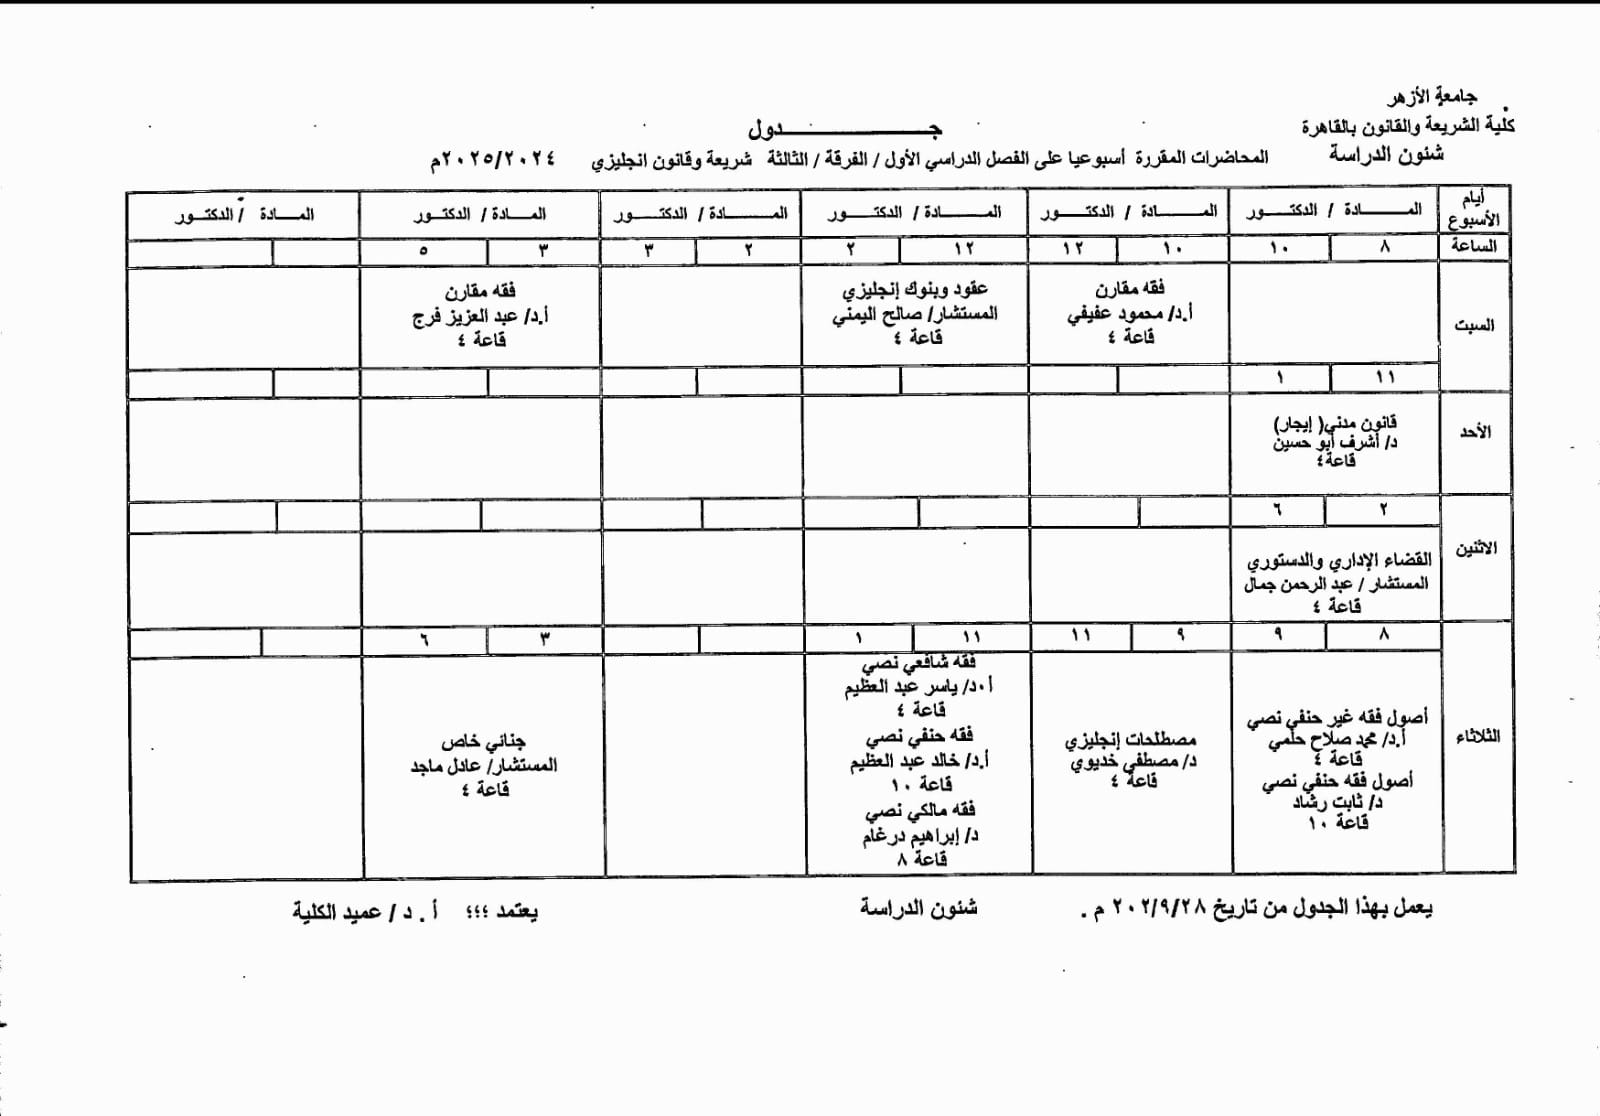 جامعة الأزهر
كلية الشريعة والقانون بالقاهرة
شئون الدراسة
جـــــــــــــدول
المحاضرات المقررة أسبوعيا على الفصل الدراسي الأول / الفرقة / الثالثة شريعة وقانون انجليزي ٢٠٢٥/٢٠٢٤م
أيام الأسبوع
المـــــــادة / الدكتـــــور
المـــــــادة / الدكتـــــور
المـــــــادة / الدكتـــــور
المـــــــادة / الدكتـــــور
المـــــادة / الدكتـــــور
المـــــادة / الدكتـــــور
الساعة
٨ ١٠
١٠ ١٢
١٢ ٢
٢ ٣
٣ ٥
السبت
فقه مقارن
أ.د/ محمود عفيفي
قاعة ٤
عقود وبنوك إنجليزي
المستشار/ صالح اليمني
قاعة ٤
فقه مقارن
أ.د/ عبد العزيز فرج
قاعة ٤
١١ ١
الأحد
قانون مدني( إيجار)
د/ أشرف أبو حسين
قاعة٤
٢ ٦
الاثنين
القضاء الإداري والدستوري
المستشار / عبد الرحمن جمال
قاعة ٤
٨ ٩
٩ ١١
١١ ١
٣ ٦
الثلاثاء
أصول فقه غير حنفي نصي
أ.د/ محمد صلاح حلمي
قاعة ٤
أصول فقه حنفي نصي
د/ ثابت رشاد
قاعة ١٠
مصطلحات إنجليزي
د/ مصطفى خديوي
قاعة ٤
فقه شافعي نصي
أ٠د/ ياسر عبد العظيم
قاعة ٤
فقه حنفي نصي
أ.د/ خالد عبد العظيم
قاعة ١٠
فقه مالكي نصي
د/ إبراهيم درغام
قاعة ٨
جنائي خاص
المستشار/ عادل ماجد
قاعة ٤
يعمل بهذا الجدول من تاريخ ٢٠٢/٩/٢٨ م .
شئون الدراسة
يعتمد ؛؛؛ أ . د / عميد الكلية